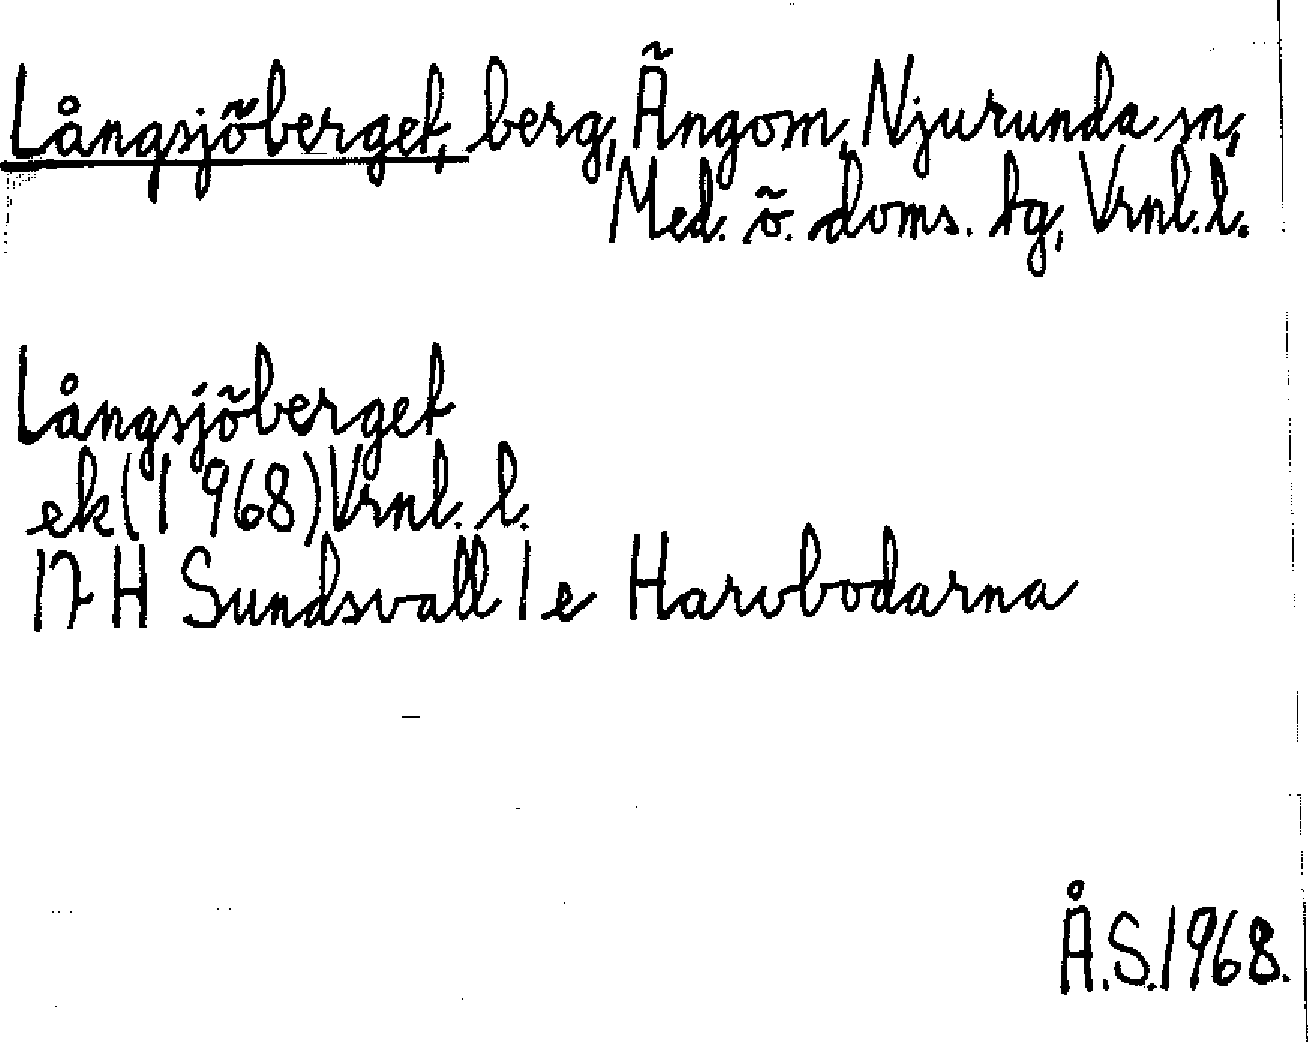 Långsjöberget, berg, Ängom, Njurunda sn,
Med. ö. doms. tg, Vrnl. l.
Långsjöberget
ek (1968) Vrnl. l.
17 H Sundsvall 1 e Harvbodarna
Å.S. 1968.